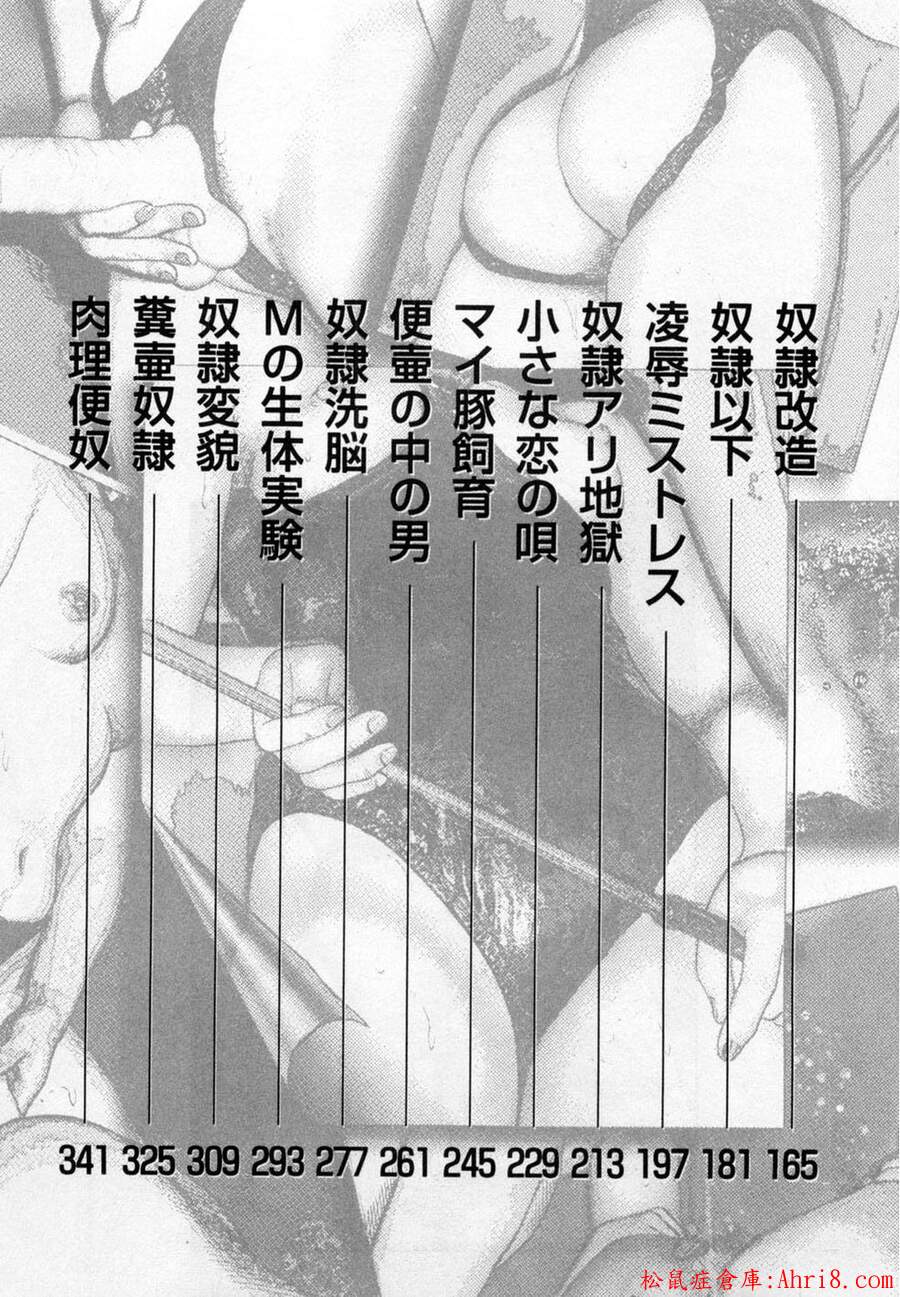 奴隷改造
165
奴隷以下
181
凌辱ミストレス
197
奴隷アリ地獄
213
小さな恋の唄
229
マイ豚飼育
245
便壷の中の男
261
奴隷洗脳
277
Mの生体実験
293
奴隷変貌
309
糞壷奴隷
325
肉理便奴
341
松鼠症倉庫:Ahri8.com